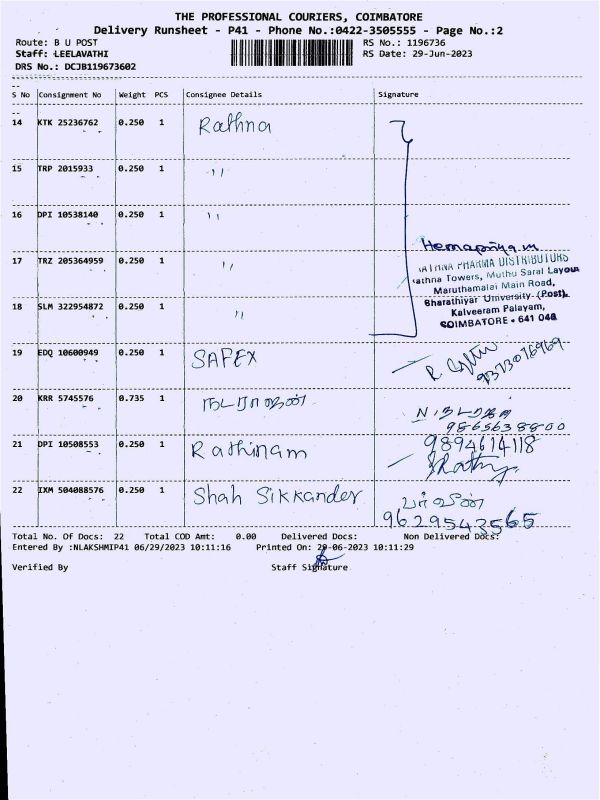 THE PROFESSIONAL COURIERS, COIMBATORE
Delivery Runsheet - P41 - Phone No.:0422-3505555 - Page No.:2
Route: B U POST
RS No.: 1196736
Staff: LEELAVATHI
RS Date: 29-Jun-2023
DRS No.: DCJB119673602
S No Consignment No Weight PCS Consignee Details Signature
14 KTK 25236762 0.250 1 Rathna
15 TRP 2015933 0.250 1 ''
16 DPI 10538140 0.250 1 ''
Hemapriya.m
17 TRZ 205364959 0.250 1 ''
RATHNA PHARMA DISTRIBUTORS
Rathna Towers, Muthu Saral Layout
Maruthamalai Main Road,
Bharathiyar University (Post),
18 SLM 322954872 0.250 1 ''
Kalveeram Palayam,
COIMBATORE - 641 046
19 EDQ 10600949 0.250 1 SAFEX
R
20 KRR 5745576 0.735 1 நடராஜன்
N. நடராஜ
9865638800
21 DPI 10508553 0.250 1 Rathinam
9894614118
22 IXM 504088576 0.250 1 Shah Sikkander
பர்வீன்
9629543565
Total No. Of Docs: 22 Total COD Amt: 0.00 Delivered Docs: Non Delivered Docs:
Entered By :NLAKSHMIP41 06/29/2023 10:11:16 Printed On: 29-06-2023 10:11:29
Verified By Staff Signature